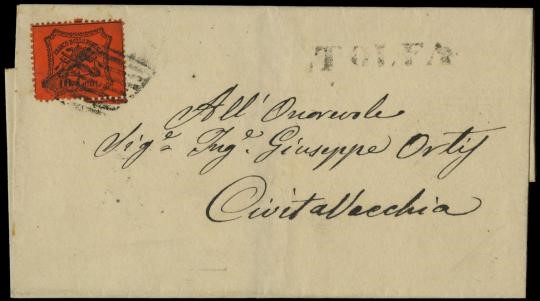 TOLFA
All' Onorevole
Sigr. Ingr. Giuseppe Ortis
CivitaVecchia